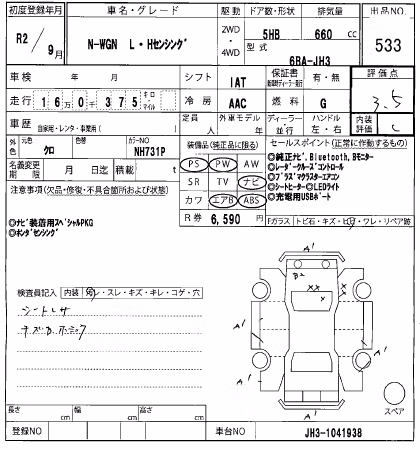 初度登録年月 車名・グレード 駆動 ドア数・形状 排気量 出品NO
R2/9月 N-WGN L・Hセンシング 2WD・4WD 5HB 660 cc 533
型式 6BA-JH3
車検 年 月 シフト IAT 保証書 有・無 評価点
走行 16万0千375キロ・マイル 冷房 AAC 燃料 G 3.5
車歴 自家用・レンタ・事業用( ) 定員 人 外車モデル 年 ディーラー 並行 ハンドル 左・右 内装評価 C
外色 元色 クロ カラーNO NH731P
装備品(純正品に限る) セールスポイント(正常に作動するもの)
名義変更期限 月 日迄 積載 t
PS PW AW
SR TV ナビ
カワ エアB ABS
R券 6,590 円
◎純正ナビ,Bluetooth,Bモニター
◎レーダークルーズコントロール
◎プラズマクラスターエアコン
◎シートヒーター◎LEDライト
◎充電用USBポート
注意事項(欠品・修復・不具合箇所および状態)
◎ナビ装着用スペシャルPKG
◎ホンダセンシング
Fガラス トビ石・キズ・ヒビ・ワレ・リペア跡
検査員記入 内装 汚レ・スレ・キズ・キレ・コゲ・穴
A'
B2
××
×
A'
A'
A'
A'
スペア
長さ cm 幅 cm 高さ cm
登録NO 車台NO JH3-1041938